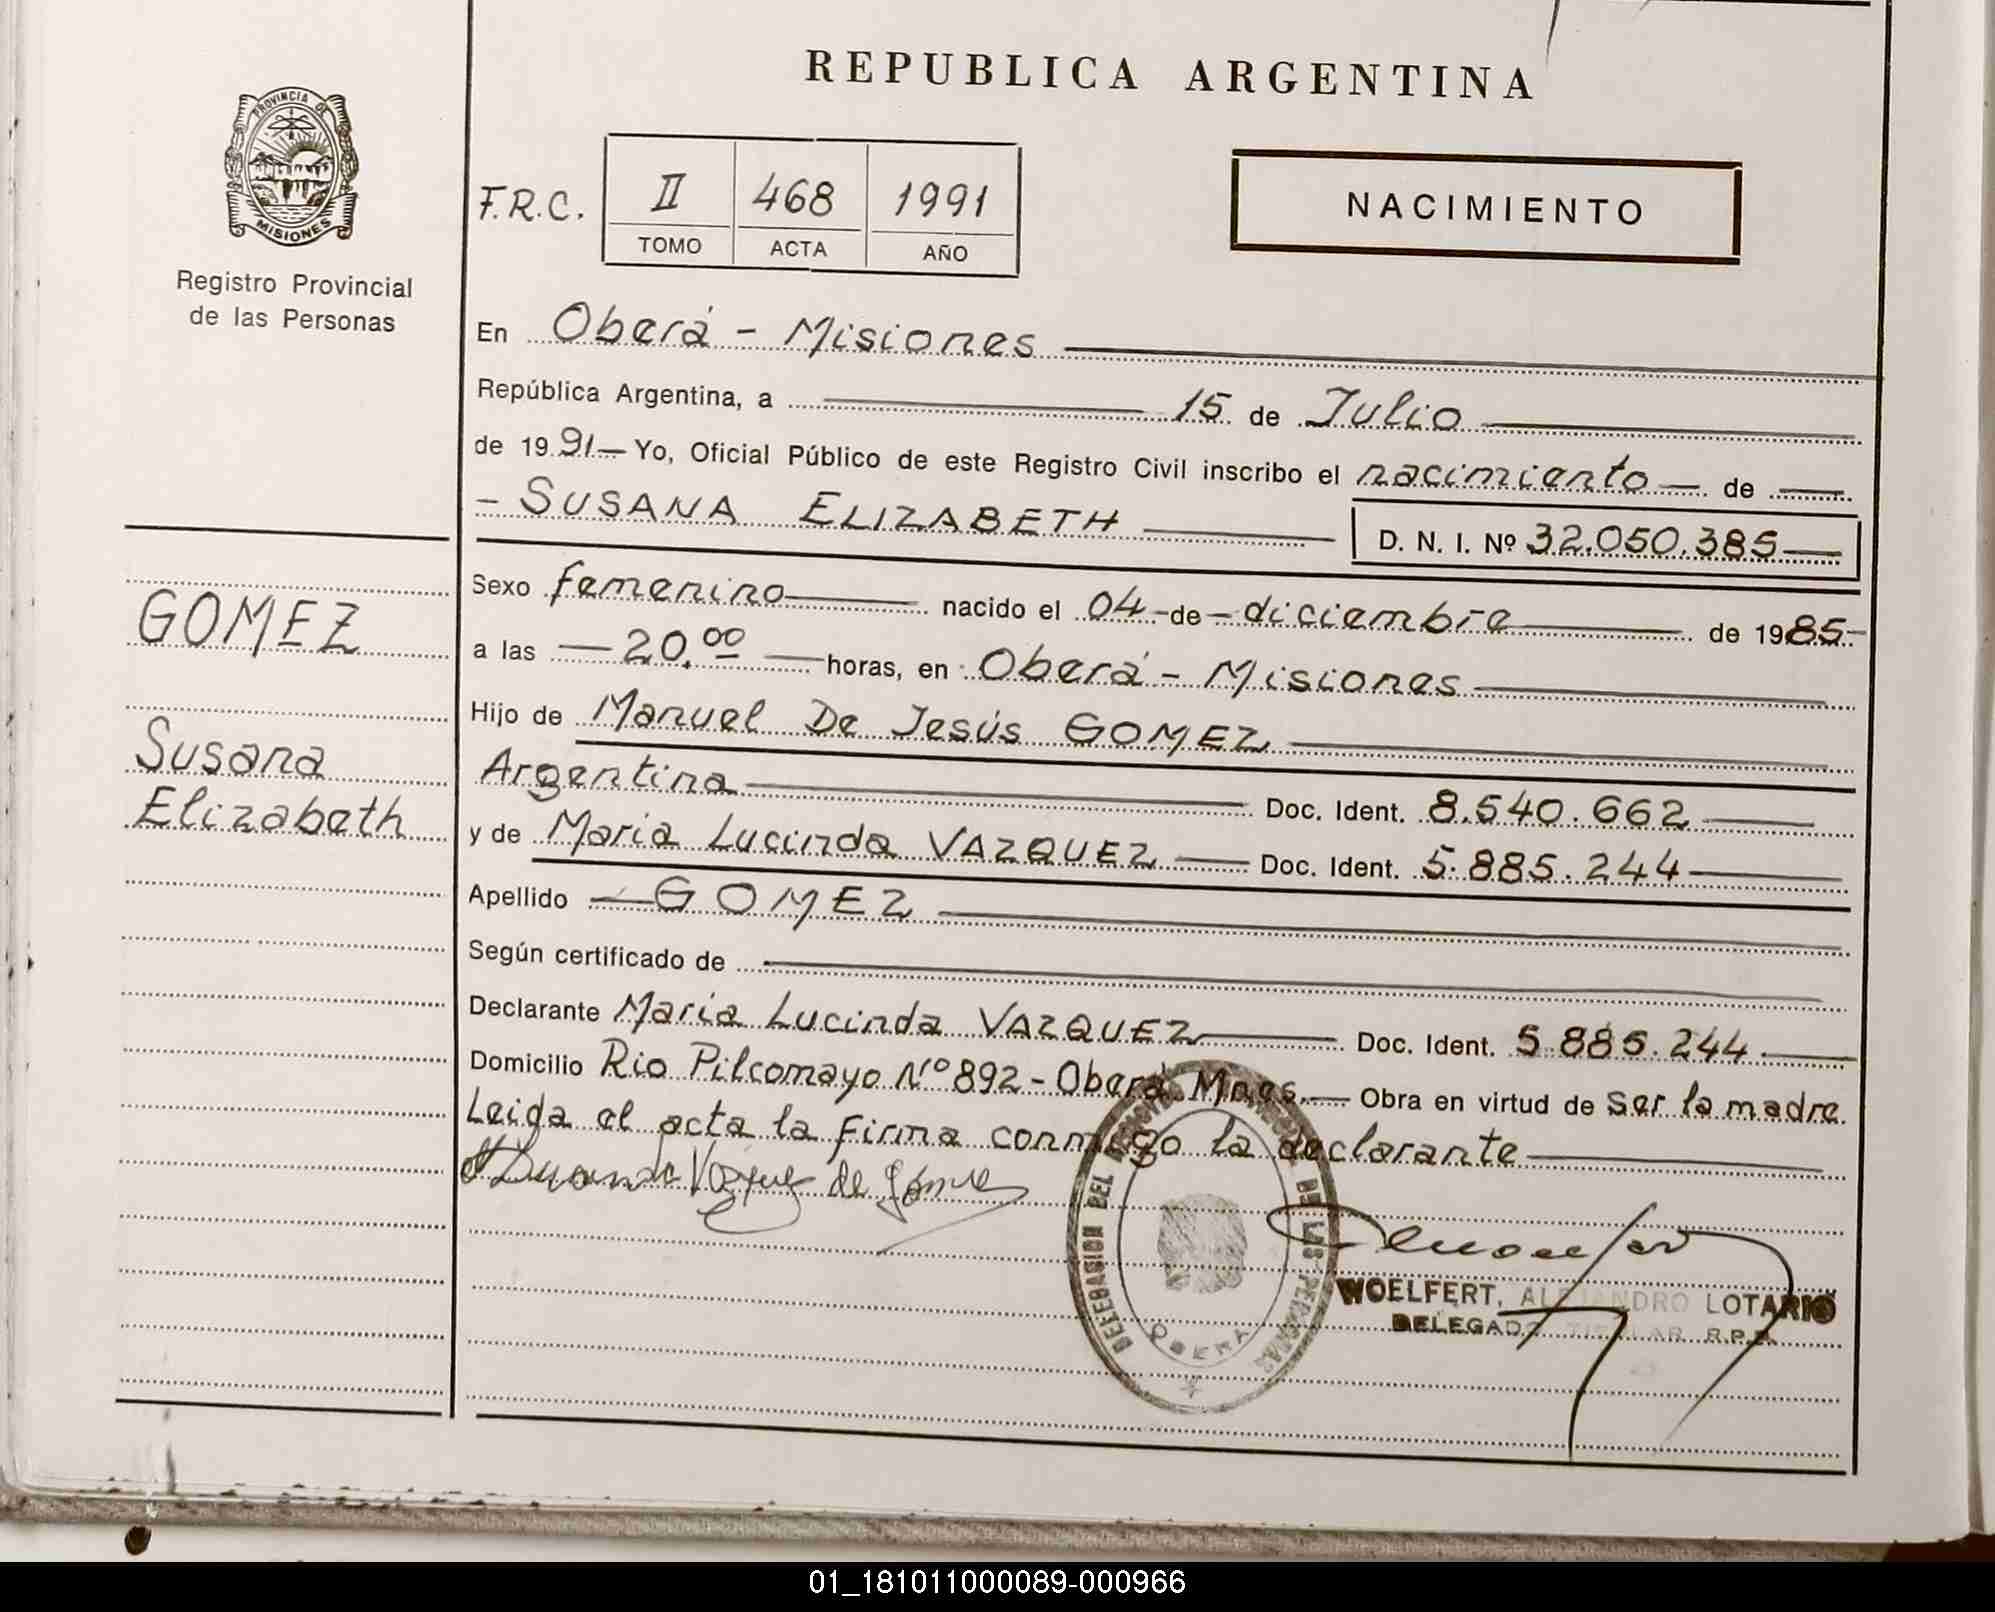 REPUBLICA ARGENTINA
PROVINCIA DE
MISIONES
Registro Provincial
de las Personas
F.R.C. II 468 1991
TOMO ACTA AÑO
NACIMIENTO
En Oberá - Misiones
República Argentina, a 15 de Julio
de 1991 - Yo, Oficial Público de este Registro Civil inscribo el nacimiento de
- SUSANA ELIZABETH
D. N. I. Nº 32.050.385
Sexo femenino nacido el 04 - de - diciembre de 1985-
a las 20,00 horas, en Oberá - Misiones
Hijo de Manuel De Jesús GOMEZ
Argentina Doc. Ident. 8.540.662
y de Maria Lucinda VAZQUEZ Doc. Ident. 5.885.244
Apellido GOMEZ
Según certificado de
Declarante Maria Lucinda VAZQUEZ Doc. Ident. 5.885.244
Domicilio Rio Pilcomayo Nº 892 - Oberá Mnes. Obra en virtud de Ser la madre.
Leida el acta la firma conmigo la declarante
GOMEZ
Susana
Elizabeth
Vazquez de Gómez
DELEGACION DEL REGISTRO PROVINCIAL DE LAS PERSONAS
OBERA
WOELFERT, ALEJANDRO LOTARIO
DELEGADO TITULAR R.P.P.
01_181011000089-000966